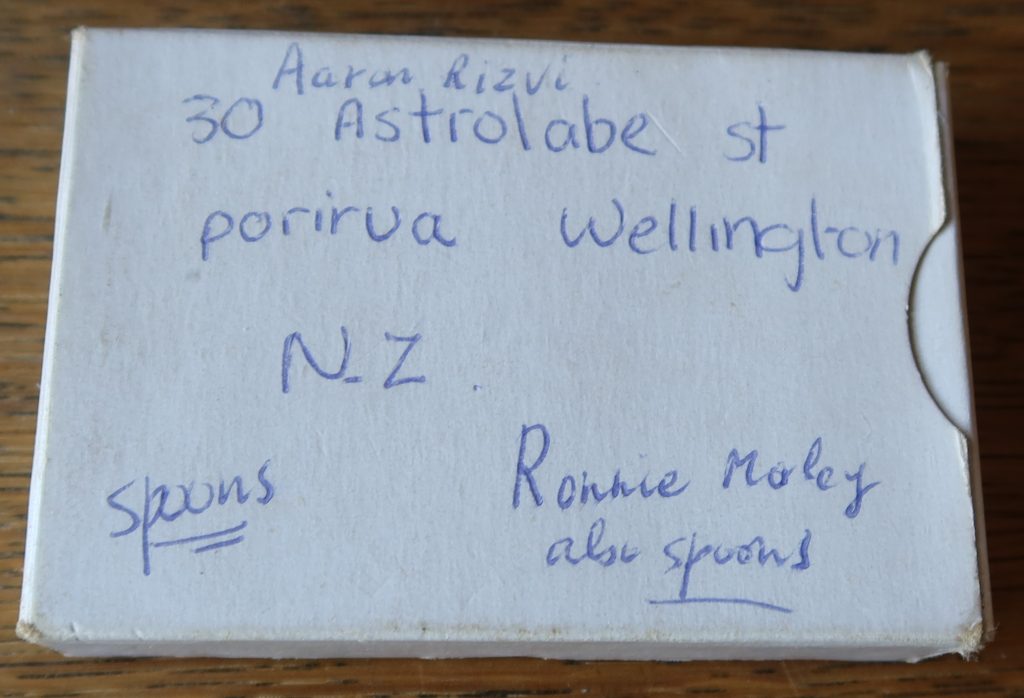 Aaron Rizvi
30 Astrolabe st
porirua Wellington
N-Z.
spoons
Ronnie Moley
also spoons